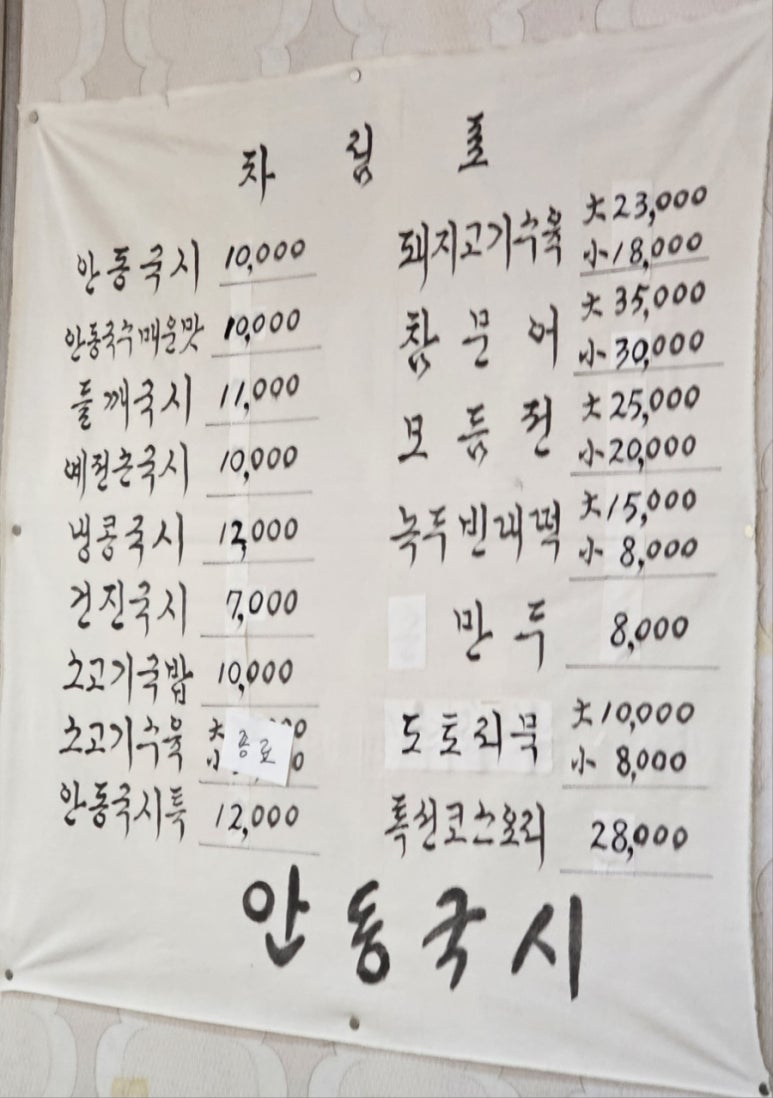 차림표
안동국시 10,000
안동국수매운맛 10,000
들깨국시 11,000
예전손국시 10,000
냉콩국시 12,000
건진국시 7,000
소고기국밥 10,000
소고기수육 大
小
종료
안동국시특 12,000
돼지고기수육 大 23,000
小 18,000
참문어 大 35,000
小 30,000
모듬전 大 25,000
小 20,000
녹두빈대떡 大 15,000
小 8,000
만두 8,000
도토리묵 大 10,000
小 8,000
특선코스요리 28,000
안동국시